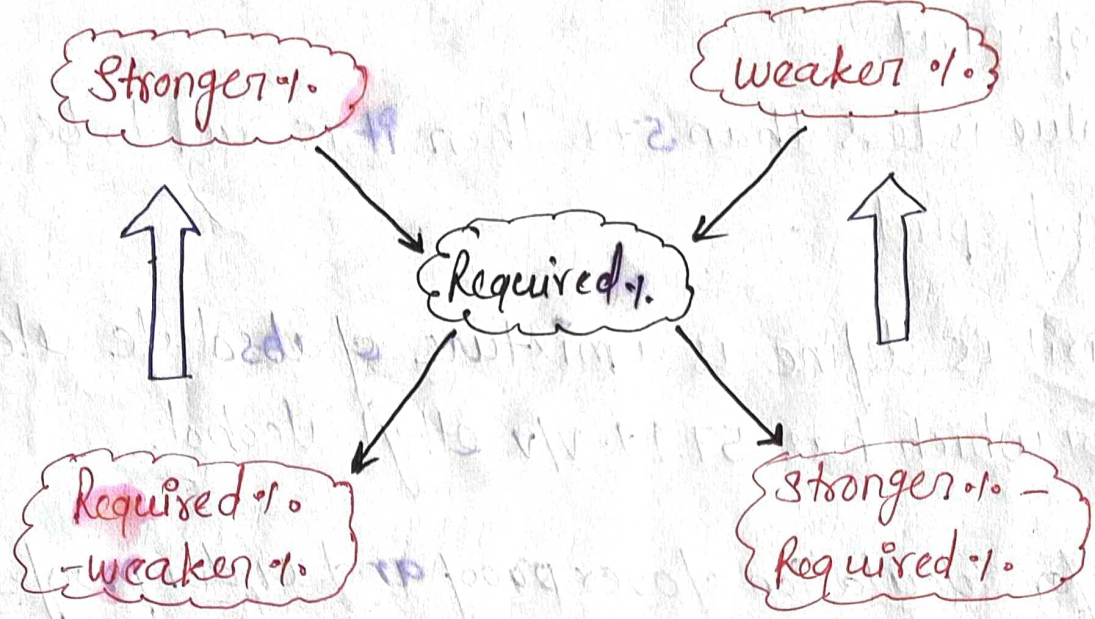 Stronger %.
weaker %.
Required %.
Required %.
-weaker %.
Stronger %. -
Required %.